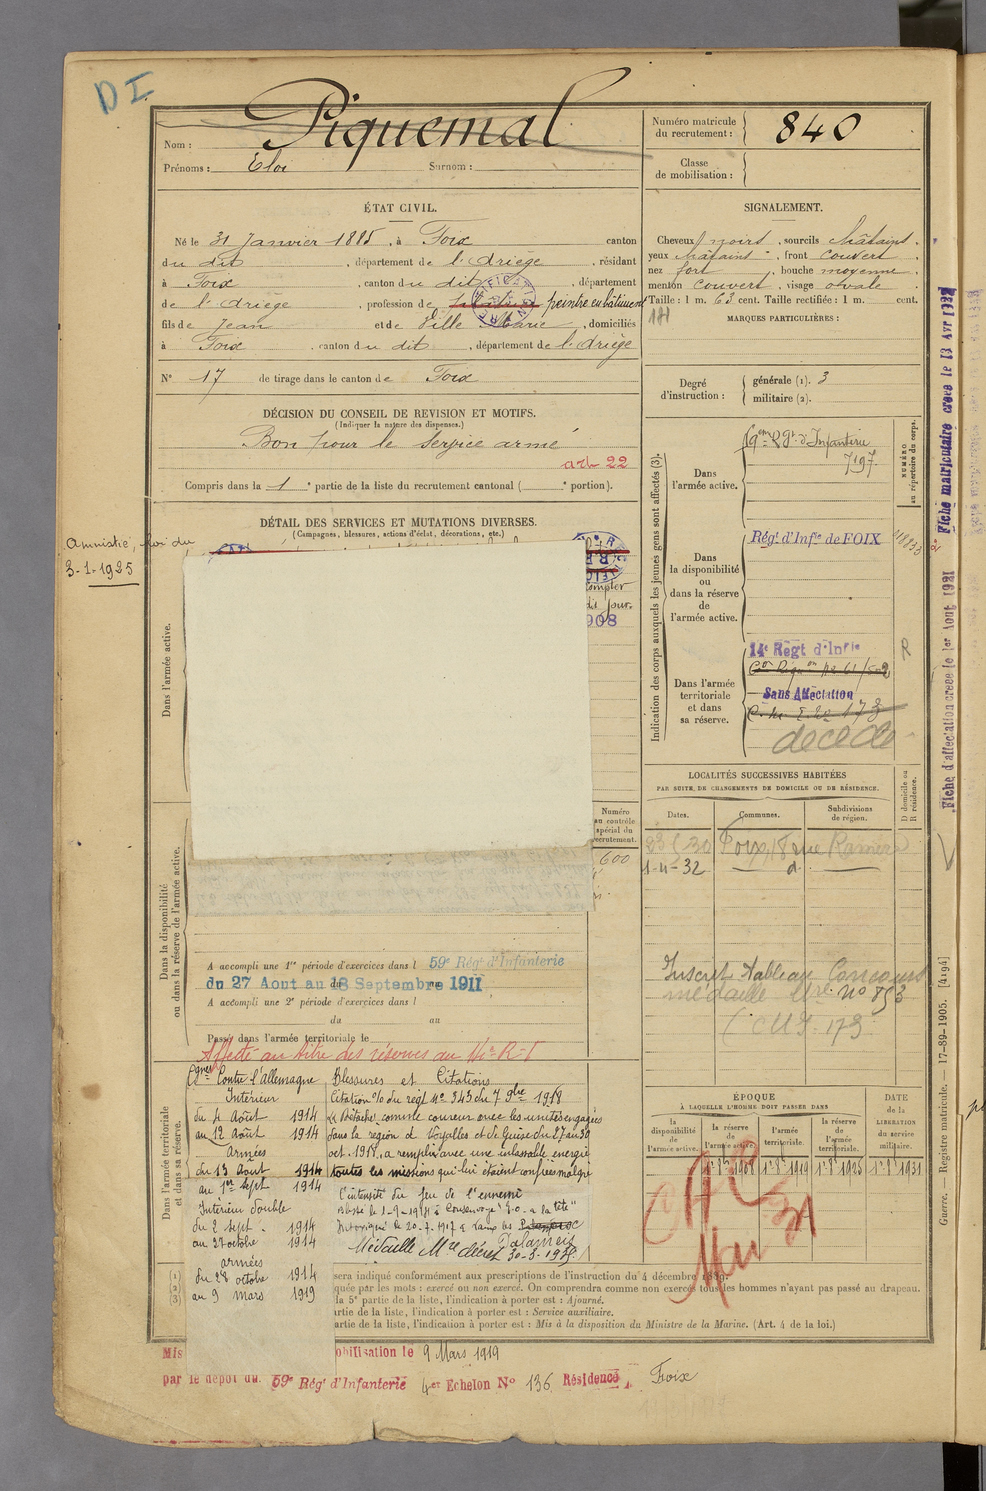 D I
Nom : Piquemal
Prénoms : Eloi Surnom :
Numéro matricule du recrutement : 840
Classe de mobilisation :
ÉTAT CIVIL.
Né le 31 Janvier 1885, à Foix canton
du dit, département de l'Ariège, résidant
à Foix, canton du dit, département
de l'Ariège, profession de peintre en bâtiment
fils de Jean et de Ville Marie, domiciliés
à Foix, canton du dit, département de l'Ariège
N° 17 de tirage dans le canton de Foix
SIGNALEMENT.
Cheveux noirs, sourcils châtains.
yeux châtains, front couvert
nez fort, bouche moyenne
menton couvert, visage ovale
Taille : 1 m. 63 cent. Taille rectifiée : 1 m. cent.
MARQUES PARTICULIÈRES :
Degré d'instruction : générale (1). 3
militaire (2).
DÉCISION DU CONSEIL DE REVISION ET MOTIFS.
(Indiquer la nature des dispenses.)
Bon pour le service armé
art 22
Compris dans la 1 e partie de la liste du recrutement cantonal ( e portion).
DÉTAIL DES SERVICES ET MUTATIONS DIVERSES.
(Campagnes, blessures, actions d'éclat, décorations, etc.)
Amnistié, loi du
3-1-1925
compter
dit jour.
908
Dans l'armée active.
Indication des corps auxquels les jeunes gens sont affectés (3).
Dans l'armée active.
Rgt d'Infanterie
7197
NUMÉRO au répertoire du corps.
Dans la disponibilité ou dans la réserve de l'armée active.
Régt d'Infie de FOIX
Dans l'armée territoriale et dans sa réserve.
14e Regt d'Infie
Sans Affectation
décédé
LOCALITÉS SUCCESSIVES HABITÉES
PAR SUITE DE CHANGEMENTS DE DOMICILE OU DE RÉSIDENCE.
Dates. Communes. Subdivisions de région. D domicile ou R résidence.
Foix, 18 rue
1-4-32 d°
Inscrit Tableau Concours
médaille Mre N° 853
Numéro au contrôle spécial du recrutement.
600
Dans la disponibilité ou dans la réserve de l'armée active.
A accompli une 1re période d'exercices dans l 59e Régt d'Infanterie
du 27 Aout au 18 Septembre 1911
A accompli une 2e période d'exercices dans l
du au
Passé dans l'armée territoriale le
Affecté au titre des réserves au R. I
Dans l'armée territoriale et dans sa réserve.
Cgnes Contre l'Allemagne
Intérieur
du 4 Août 1914
au 12 Août 1914
Armées
du 13 Août 1914
au 1er sept 1914
Intérieur double
du 2 sept. 1914
au 27 octobre 1914
armées
du 28 octobre 1914
au 9 mars 1919
Blessures et Citations
Citation o/ du regt N° 343 du 7 9bre 1918
comme coureur avec les unités engagées
dans la région de et de Guise du 27 au 30
oct. 1918, a rempli avec une inlassable énergie
toutes les missions qui lui étaient confiées malgré
l'intensité du feu de l'ennemi
Blessé le 1-9-1914 à "E.O. à la tête"
Médaille Mre décret 30-3-1935
ÉPOQUE
À LAQUELLE L'HOMME DOIT PASSER DANS
la disponibilité de l'armée active. la réserve de l'armée active. l'armée territoriale. la réserve de l'armée territoriale.
DATE de la LIBÉRATION du service militaire.
1r 8bre 1908 1r 8bre 1919 1r 8bre 1925 1r 8bre 1931
sera indiqué conformément aux prescriptions de l'instruction du 4 décembre 1889.
quée par les mots : exercé ou non exercé. On comprendra comme non exercés tous les hommes n'ayant pas passé au drapeau.
la 5e partie de la liste, l'indication à porter est : Ajourné.
artie de la liste, l'indication à porter est : Service auxiliaire.
artie de la liste, l'indication à porter est : Mis à la disposition du Ministre de la Marine. (Art. 4 de la loi.)
Mis obilisation le 9 Mars 1919
par le dépôt du 59e Régt d'Infanterie 4er Echelon N° 136 Résidence Foix
Guerre. — Registre matricule. — 17-89-1905. [4194]
Fiche d'affectation créée le 1er Aout 1921
Fiche matriculaire créée le 13 Avr 1932